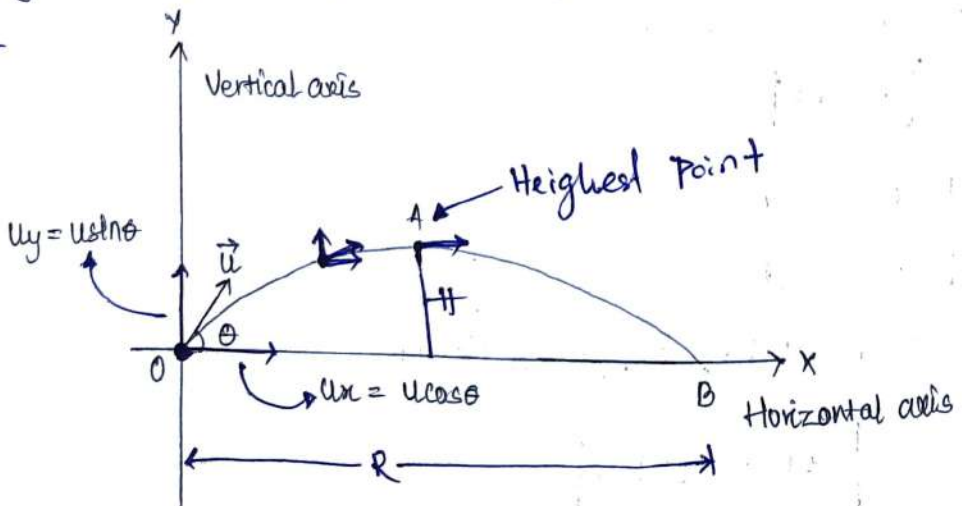 Y
Vertical axis
Heighest Point
A
uy = usinθ
u⃗
H
θ
O
ux = ucosθ
X
B
Horizontal axis
R